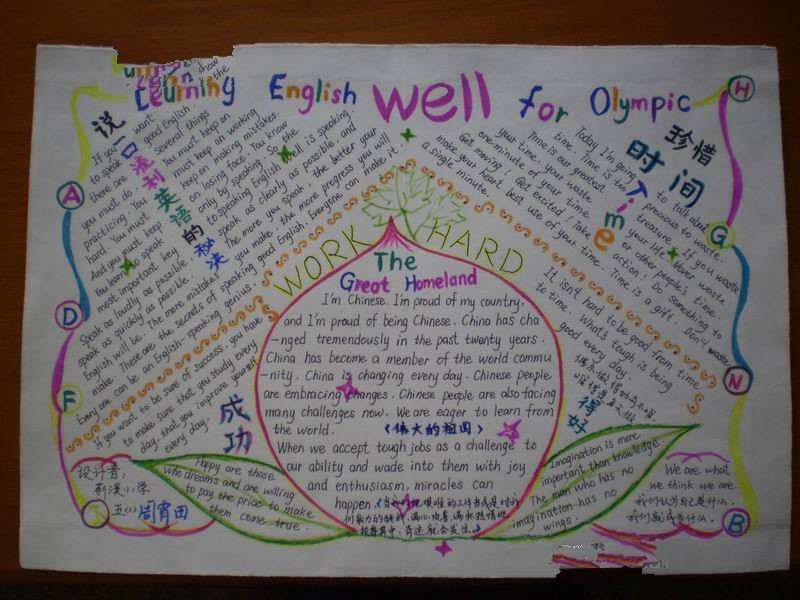 Learning English well for Olympic
说一口流利英语的秘决
If you want
to speak good English.
there are several things
you must do. You must keep on
practicing. You must keep on working
hard. You must keep on making mistakes.
And you must keep on losing face. You know
You learn to speak only by speaking. So the
most important key to speaking English well is speaking.
Speak as loudly as possible. speak as clearly as possible, and
speak as quickly as possible. The more you speak, the better your
English will be. The more mistakes you make, the more progress you will
make. These are the secrets of speaking good English. Everyone can make it.
Every one can be an English-speaking genius.
If you want to be sure of success, you have
to make sure that you study every
day, that you improve yourself
every day.
成功
珍惜时间
Time
Today I'm going to talk about
time. Time is too precious to waste.
Time is our greatest treasure. If you waste
your time, you waste your life. Never waste
one minute of your time or other people's time.
Get moving! Get excited! Take action. Do something to
make your heart beat. Time is a gift. Don't waste
a single minute.
It isn't hard to be good from time
to time. What's tough is being
good every day.
得好
WORK HARD
The
Great Homeland
I'm Chinese. I'm proud of my country,
and I'm proud of being Chinese. China has cha
-nged tremendously in the past twenty years.
China has become a member of the world commu
-nity. China is changing every day. Chinese people
are embracing changes. Chinese people are also facing
many challenges now. We are eager to learn from
the world. 《伟大的祖国》
When we accept tough jobs as a challenge to
our ability and wade into them with joy
and enthusiasm, miracles can
happen.
Happy are those
who dreams and are willing
to pay the price to make
them come true.
Imagination is more
important than knowledge.
The man who has no
imagination has no
wings.
设计者:
小学
五(4)周宵田
We are what
we think we are.
我们认为自己是什么,
我们就成为什么。
A
D
F
J
H
G
N
B